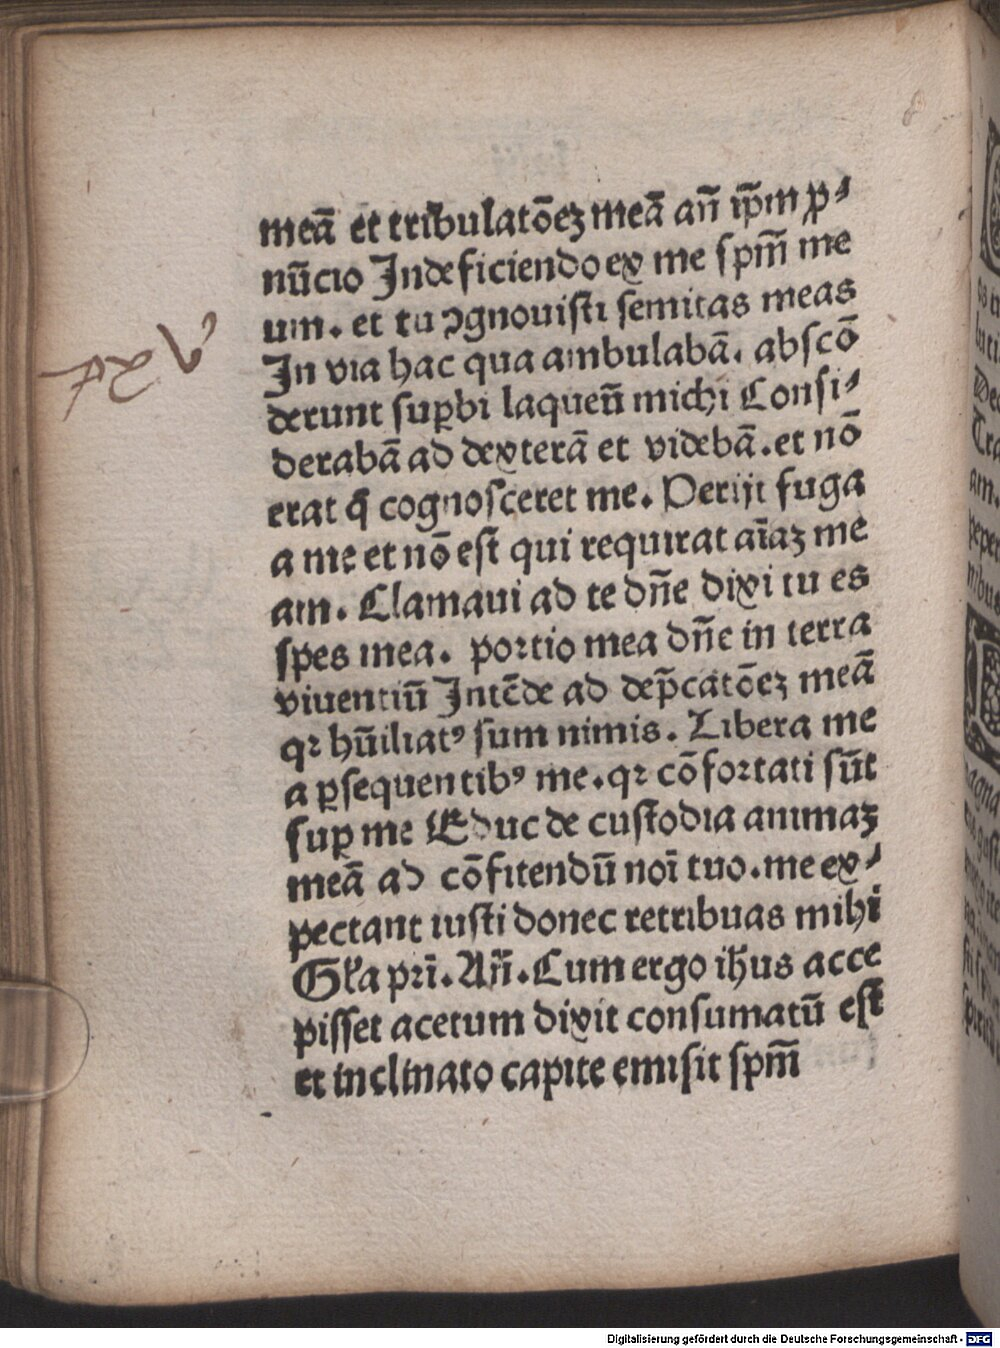 meā et tribulatōeꝫ meā añ ip̄m p̱⸗
nūcio Indeficiendo ex me sp̄m me
um. et tu ꝯgnouisti semitas meas
In via hac qua ambulabā. abscō
derunt suꝑbi laqueū michi Consi⸗
derabā ad dexterā et videbā. et nō
erat q̄ cognosceret me. Perijt fuga
a me et nō est qui requirat aīaꝫ me
am. Clamaui ad te dñe dixi tu es
spes mea. portio mea dñe in terra
viuentiū Intēde ad dep̄catōeꝫ meā
qꝛ hūiliatꝰ sum nimis. Libera me
a ꝑsequentibꝰ me. qꝛ cōfortati sūt
suꝑ me Educ de custodia animaꝫ
meā ad cōfitendū noī tuo. me ex⸗
pectant iusti donec retribuas mihi
Gła pri̅. Añ. Cum ergo ih̄us acce
pisset acetum dixit consumatū est
et inclinato capite emisit sp̄m
Digitalisierung gefördert durch die Deutsche Forschungsgemeinschaft - DFG